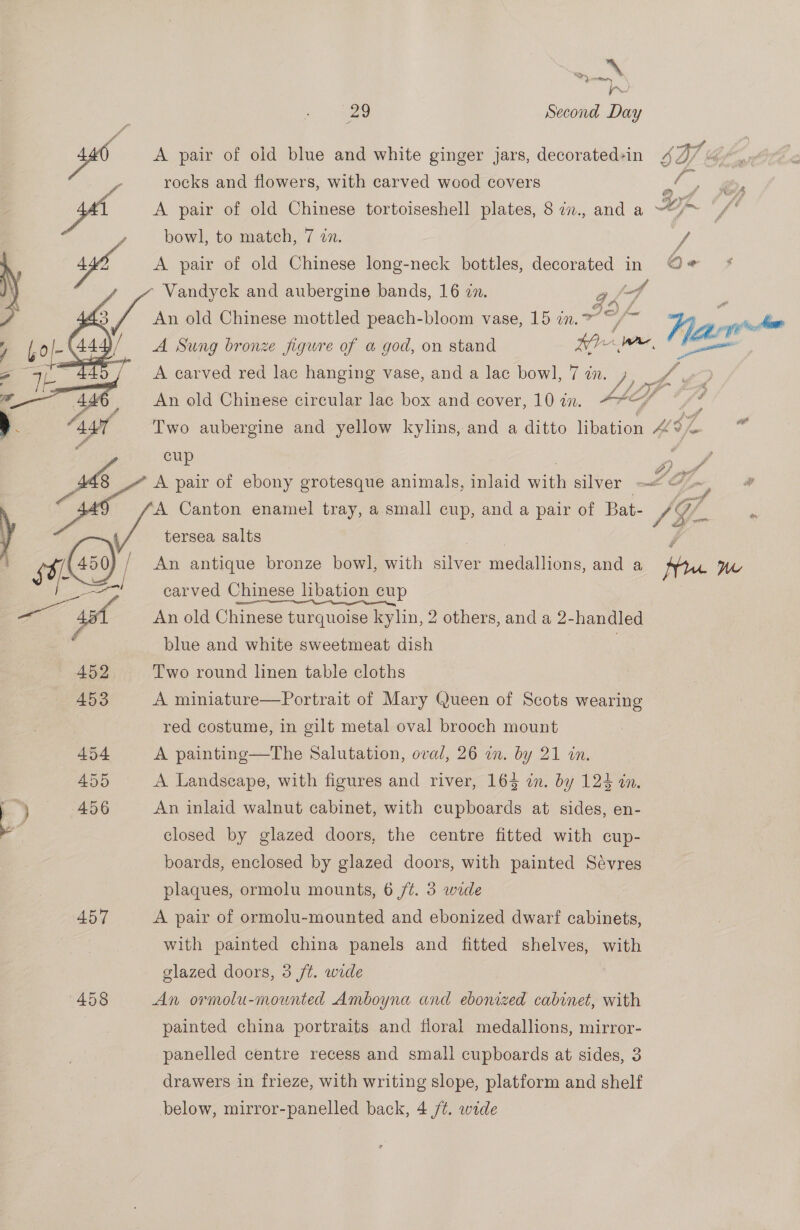 29 Second Day
440 A pair of old blue and white ginger jars, decorated in
rocks and flowers, with carved wood covers
441 A pair of old Chinese tortoiseshell plates, 8 in., and a
bowl, to match, 7 in.
442 A pair of old Chinese long-neck bottles, decorated in
Vandyck and aubergine bands, 16 in.
443 An old Chinese mottled peach-bloom vase, 15 in.
444 A Sung bronze figure of a god, on stand
445 A carved red lac hanging vase, and a lac bowl, 7 in.
446 An old Chinese circular lac box and cover, 10 in.
447 Two aubergine and yellow kylins, and a ditto libation
cup
448 A pair of ebony grotesque animals, inlaid with silver
449 A Canton enamel tray, a small cup, and a pair of Bat-
tersea salts
450 An antique bronze bowl, with silver medallions, and a
carved Chinese libation cup
451 An old Chinese turquoise kylin, 2 others, and a 2-handled
blue and white sweetmeat dish
452 Two round linen table cloths
453 A miniature—Portrait of Mary Queen of Scots wearing
red costume, in gilt metal oval brooch mount
454 A painting—The Salutation, oval, 26 in. by 21 in.
455 A Landscape, with figures and river, 16½ in. by 12½ in.
456 An inlaid walnut cabinet, with cupboards at sides, en-
closed by glazed doors, the centre fitted with cup-
boards, enclosed by glazed doors, with painted Sèvres
plaques, ormolu mounts, 6 ft. 3 wide
457 A pair of ormolu-mounted and ebonized dwarf cabinets,
with painted china panels and fitted shelves, with
glazed doors, 3 ft. wide
458 An ormolu-mounted Amboyna and ebonized cabinet, with
painted china portraits and floral medallions, mirror-
panelled centre recess and small cupboards at sides, 3
drawers in frieze, with writing slope, platform and shelf
below, mirror-panelled back, 4 ft. wide